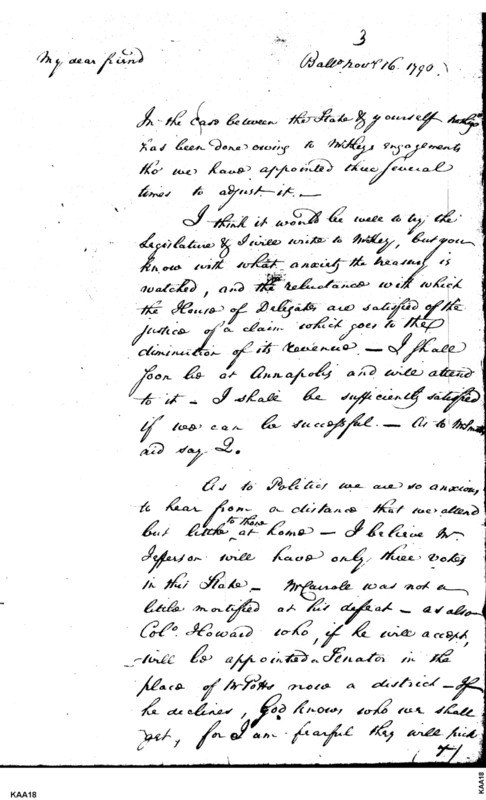 3
My dear friend
Balto. novr 16. 1790.
In the case between the State & yourself nothing
has been done owing to McKeys engagements
tho' we have appointed three several
times to adjust it. —
I think it would be well to try the
Legislature & I will write to McKey, but you
know with what anxiety the treasury is
watched, and the reluctance with which
the House of Delegates are satisfied of the
justice of a claim which goes to the
diminution of its revenue. — I shall
soon be at Annapolis and will attend
to it — I shall be sufficiently satisfied
if we can be successful. — As to
aid say Q.
As to Politics we are so anxious
to hear from a distance that we attend
but little to those at home — I believe Mr.
Jefferson will have only three votes
in this State — Mr Carroll was not a
little mortified at his defeat — as also
Colo. Howard who, if he will accept,
will be appointed a Senator in the
place of Mr Potts now a district — If
he declines, God knows who we shall
get, for I am fearful they will pick
(4)
KAA18
KAA18